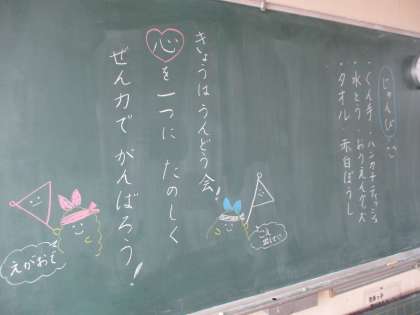 じゅんび
・ぐん手 ・ハンカチ・ティッシュ
・水とう ・おうえんグッズ
・タオル ・赤白ぼうし
きょうはうんどう会!
心を一つに たのしく
ぜん力で がんばろう!
えがおで